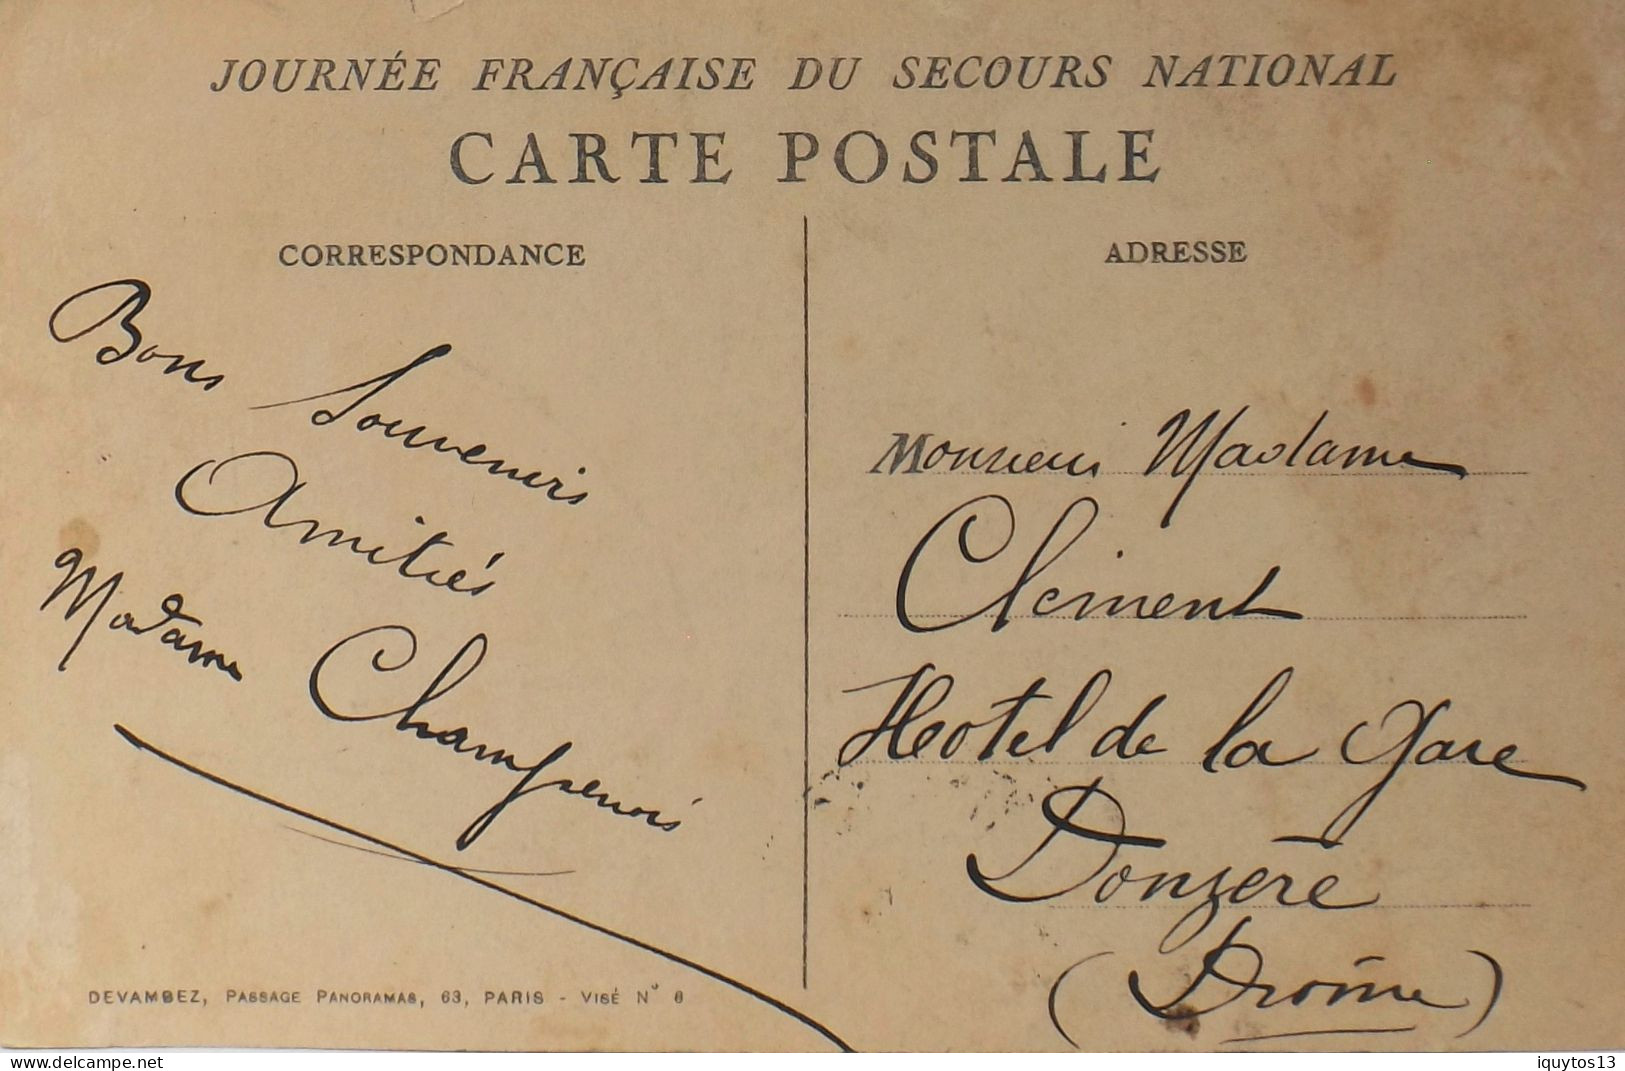 JOURNÉE FRANÇAISE DU SECOURS NATIONAL
CARTE POSTALE
CORRESPONDANCE
Bons Souvenirs
Amitiés
Madame Champenois
DEVAMBEZ, PASSAGE PANORAMAS, 63, PARIS - VISÉ N° 6
ADRESSE
Monsieur Madame
Clément
Hotel de la Gare
Donzère
(Drôme)
delcampe.net
iquytos13